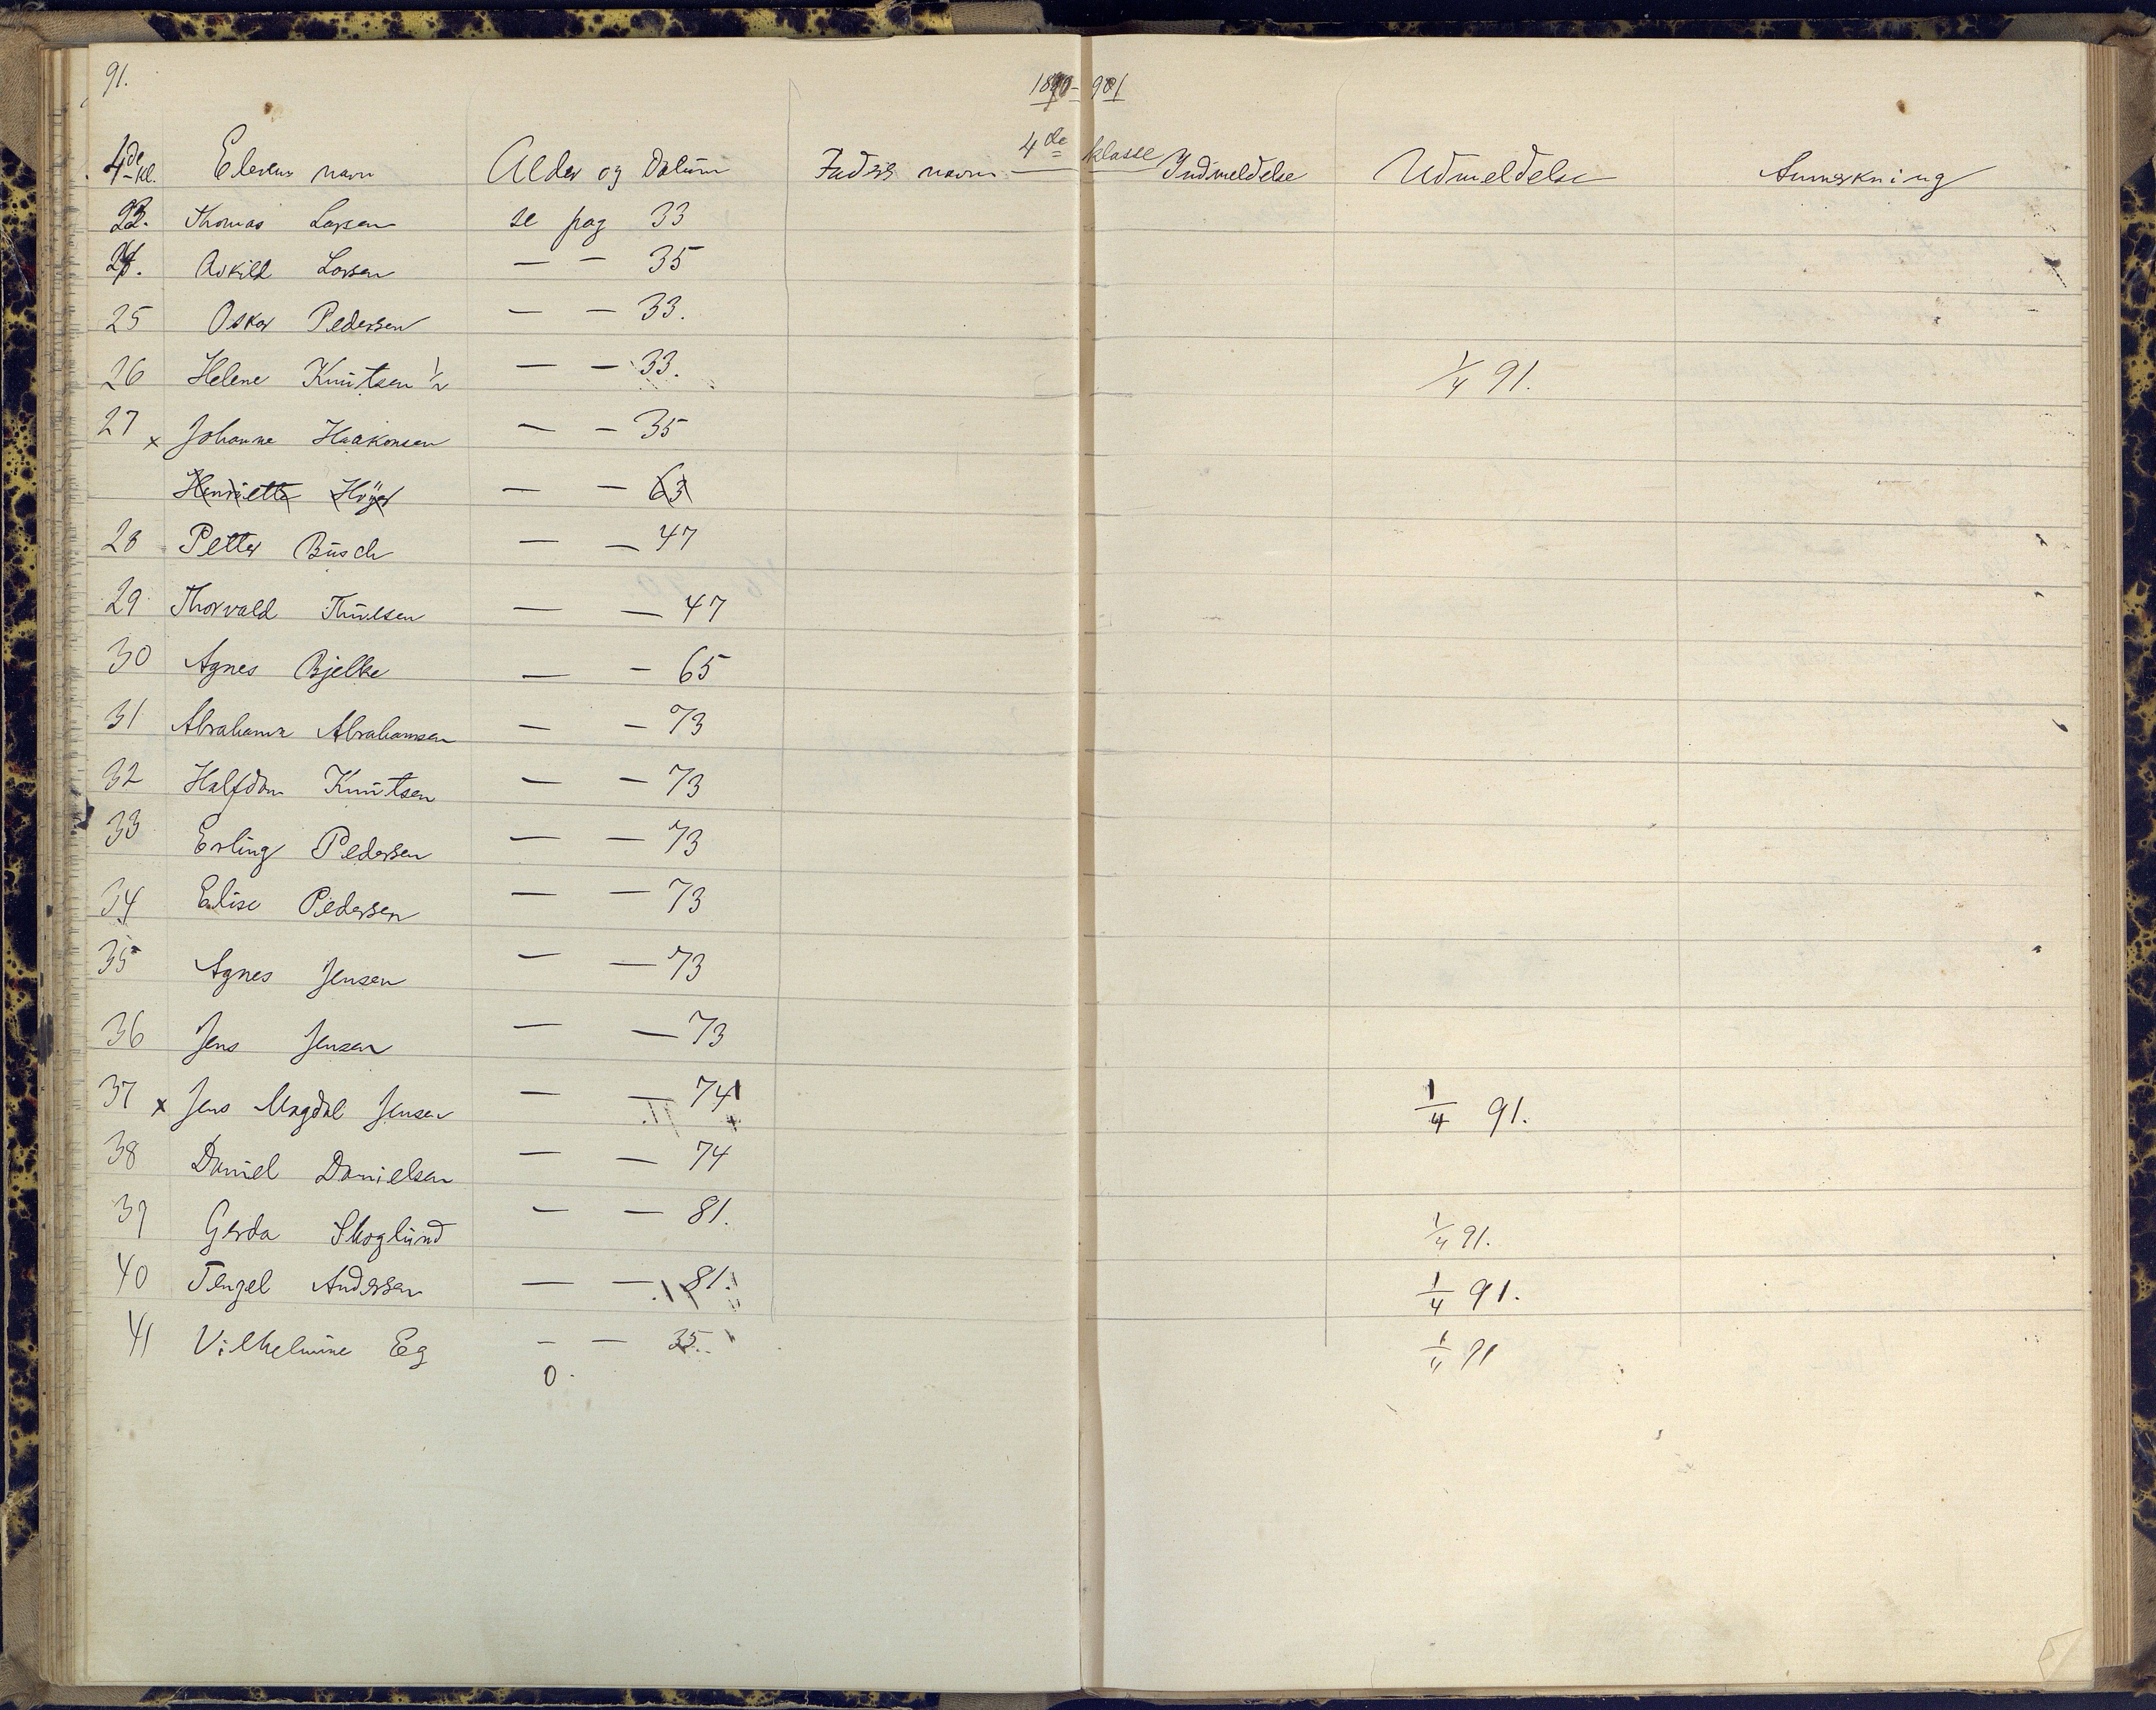 91.
1890-91
4de klasse
4de kl. Elevens navn Alder og Datum Faders navn Indmeldelse Udmeldelse Anmerkning
23. Thomas Larsen se pag 33
24. Askild Larsen — — 35
25 Oskar Pedersen — — 33.
26 Helene Knutsen 1/2 — — 33. 1/4 91.
27 x Johanne Haakonsen — — 35
Henriette Höyer — — 63
28 Petter Busch — — 47
29 Thorvald — — 47
30 Agnes Bjelke — — 65
31 Abraham Abrahamsen — — 73
32 Halfdan Knutsen — — 73
33 Erling Pedersen — — 73
34 Elise Pedersen — — 73
35 Agnes Jensen — — 73
36 Jens Jensen — — 73
37 x Jens Magdal Jensen — — 74 1/4 91.
38 Daniel Danielsen — — 74
39 Gerda Skoglund — — 81. 1/4 91.
40 Tengel Andersen — — 81. 1/4 91.
41 Vilhelmine Eg — — 35. 1/4 91
0.